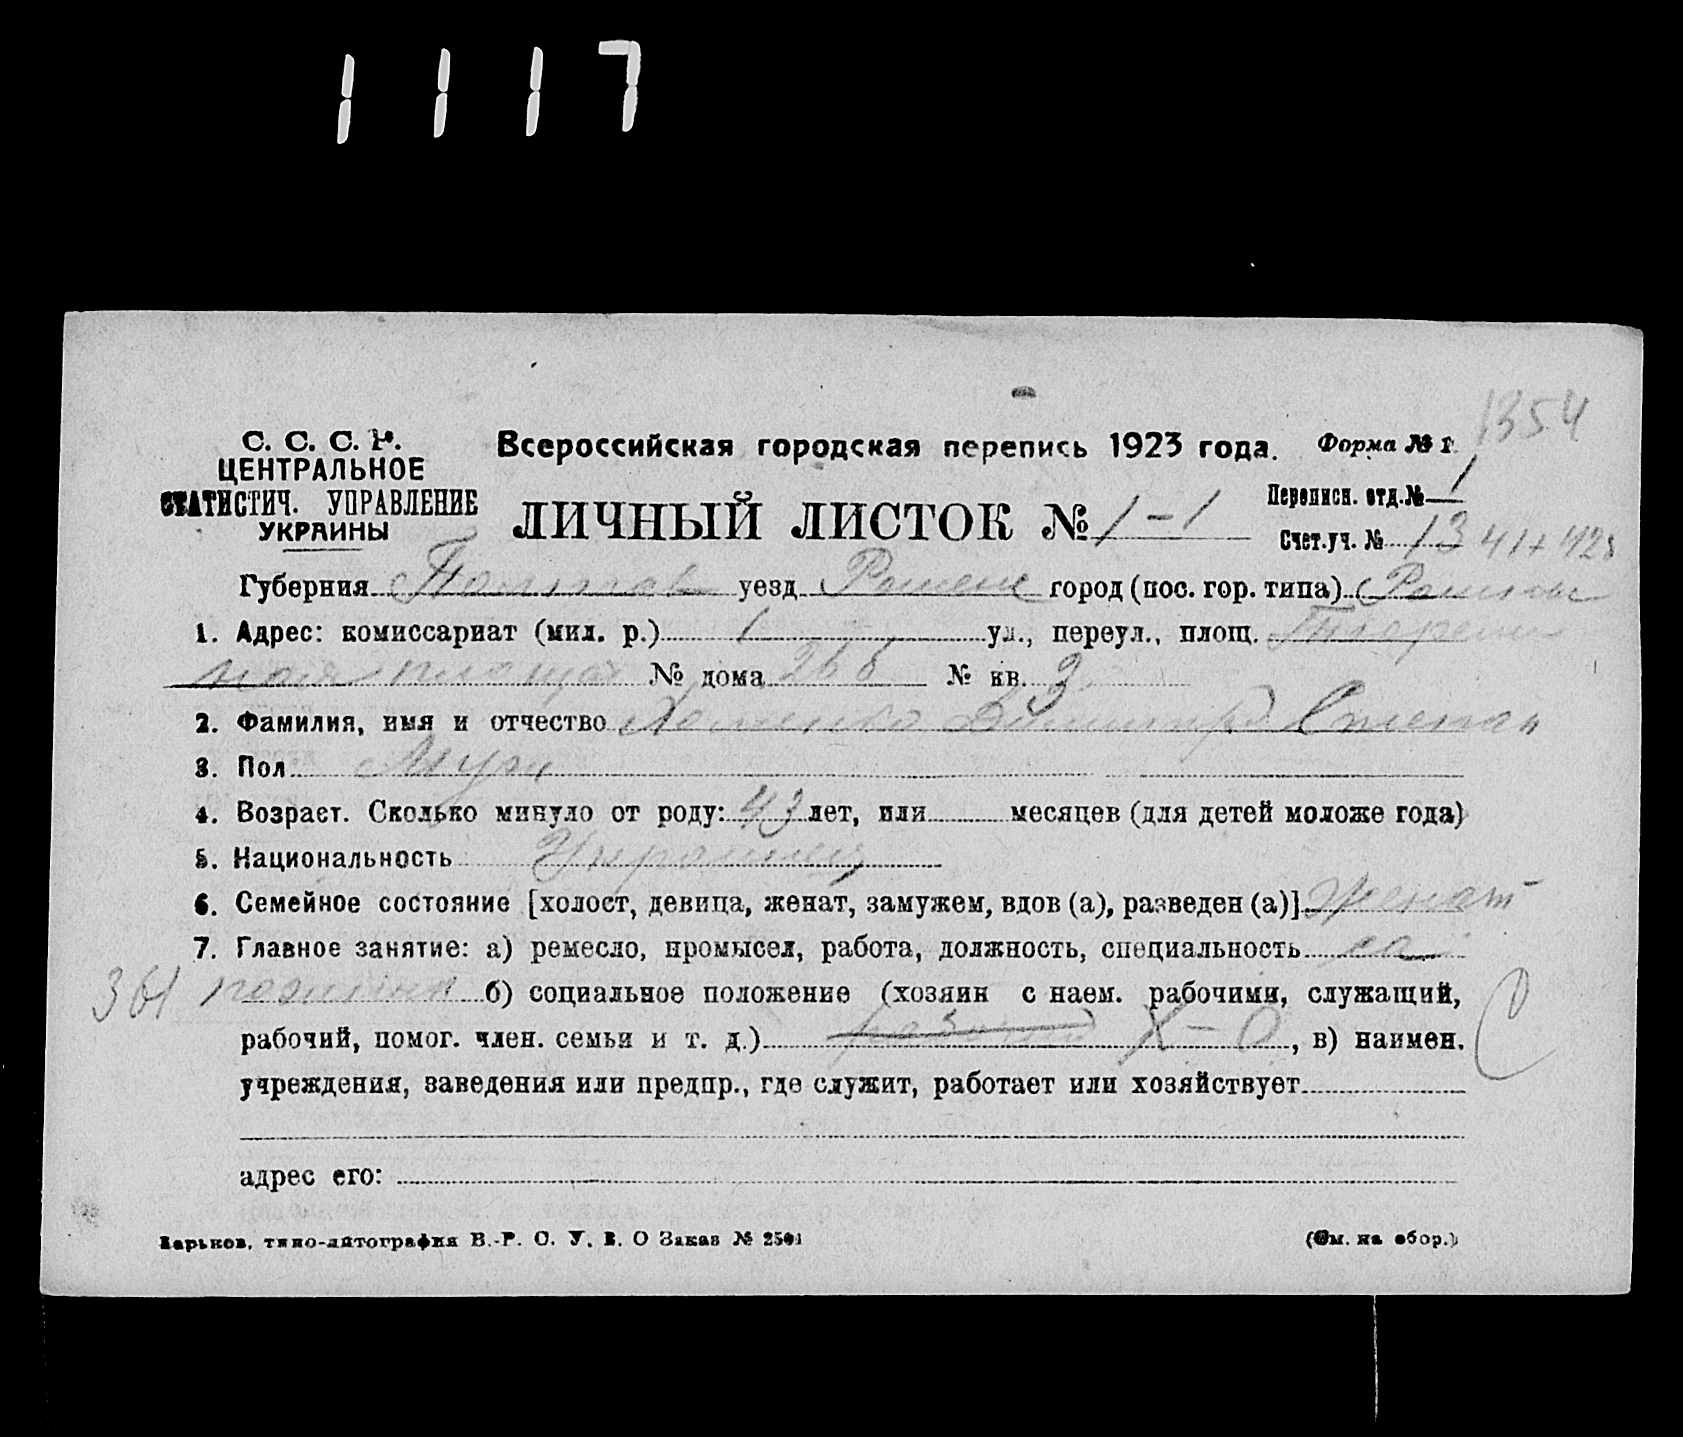 1117
1354
С. С. С. Р.
ЦЕНТРАЛЬНОЕ
СТАТИСТИЧ. УПРАВЛЕНИЕ
УКРАИНЫ
Всероссийская городская перепись 1923 года. Форма № 1.
ЛИЧНЫЙ ЛИСТОК № 1-1
Переписн. отд. № 1
Счет. уч. № 13 41+428
Губерния Полтав уезд Ромены город (пос. гор. типа) Ромны
1. Адрес: комиссариат (мил. р.) 1 ул., переул., площ.
площад № дома 268 № кв. 3
2. Фамилия, имя и отчество Хоменко Димитр Степан
3. Пол Муж
4. Возраст. Сколько минуло от роду: 43 лет, или месяцев (для детей моложе года)
5. Национальность Украинец
6. Семейное состояние [холост, девица, женат, замужем, вдов (а), разведен (а)] Женат
7. Главное занятие: а) ремесло, промысел, работа, должность, специальность са
361 пожник б) социальное положение (хозяин с наем. рабочими, служащий,
рабочий, помог. член. семьи и т. д.) рабочий Х-О, в) наимен.
учреждения, заведения или предпр., где служит, работает или хозяйствует
адрес его:
Харьков, типо-литография В.-Р. С. У. В. О Заказ № 2501 (См. на обор.)